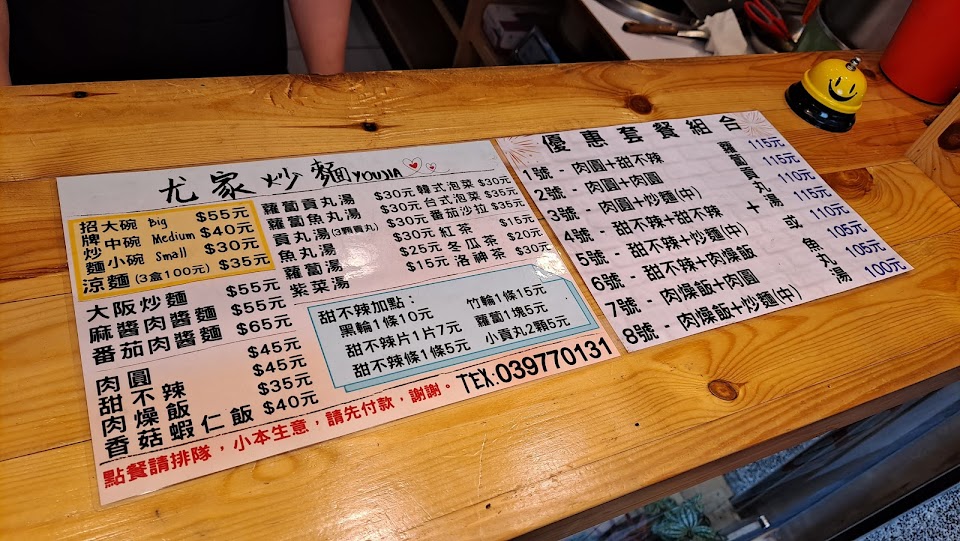 尤家炒麵 YOUJIA
招牌炒麵
大碗 Big $55元
中碗 Medium $40元
小碗 Small $30元
涼麵 (3盒100元) $35元
大阪炒麵 $55元
麻醬肉醬麵 $55元
番茄肉醬麵 $65元
肉圓 $45元
甜不辣 $45元
肉燥飯 $35元
香菇蝦仁飯 $40元
蘿蔔貢丸湯 $30元
蘿蔔魚丸湯 $30元
貢丸湯(3顆貢丸) $30元
魚丸湯 $30元
蘿蔔湯 $25元
紫菜湯 $15元
韓式泡菜 $30元
台式泡菜 $35元
番茄沙拉 $35元
紅茶 $15元
冬瓜茶 $20元
洛神茶 $30元
甜不辣加點：
黑輪1條10元 竹輪1條15元
甜不辣片1片7元 蘿蔔1塊5元
甜不辣條1條5元 小貢丸2顆5元
點餐請排隊，小本生意，請先付款，謝謝。
TEX:039770131
優惠套餐組合
1號 - 肉圓+甜不辣 115元
2號 - 肉圓+肉圓 115元
3號 - 肉圓+炒麵(中) 110元
4號 - 甜不辣+甜不辣 115元
5號 - 甜不辣+炒麵(中) 110元
6號 - 甜不辣+肉燥飯 105元
7號 - 肉燥飯+肉圓 105元
8號 - 肉燥飯+炒麵(中) 100元
+
蘿蔔貢丸湯
或
魚丸湯